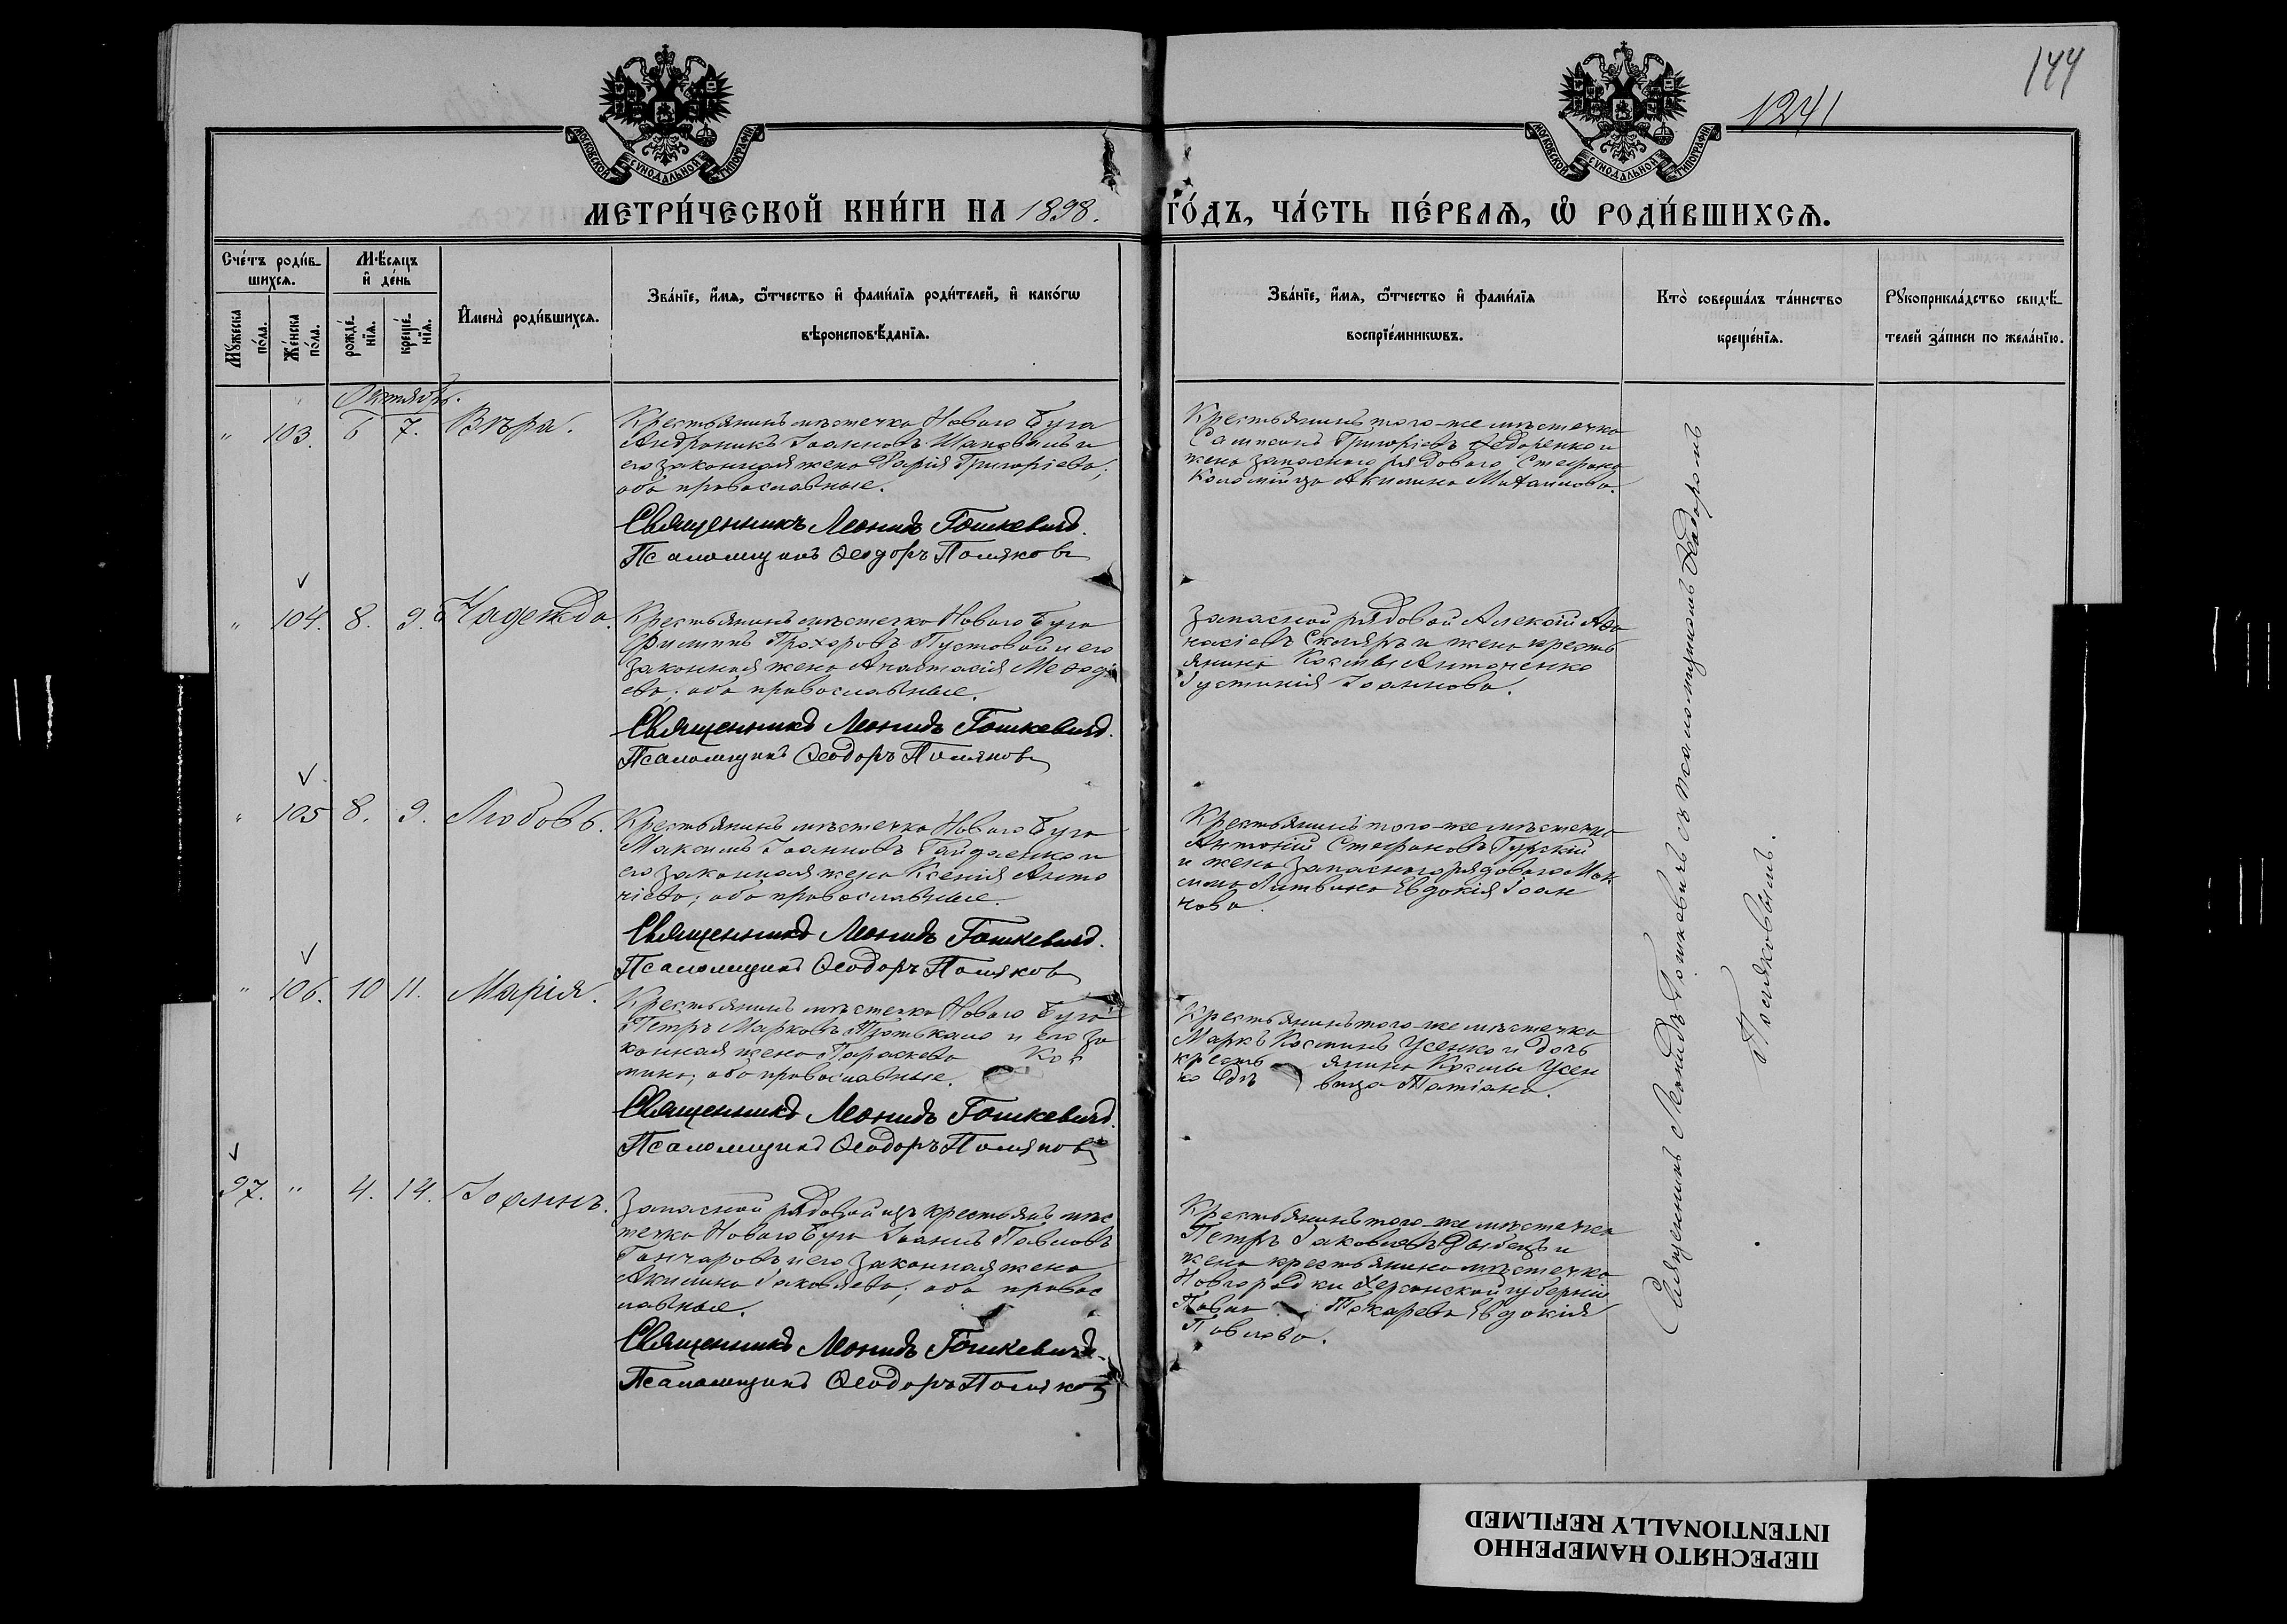 144
1241
МОСКОВСКОЙ СУНОДАЛЬНОЙ ТИПОГРАФІИ
МОСКОВСКОЙ СУНОДАЛЬНОЙ ТИПОГРАФІИ
МЕТРИ́ЧЕСКОЙ КНИ́ГИ НА 1898. ГО́ДЪ, ЧА́СТЬ ПЕ́РВАѦ, Ѽ РОДИ́ВШИХСѦ.
Сче́тъ роди́в-
шихсѧ.
Му́жеска по́ла.
Же́нска по́ла.
Мѣ́сѧцъ
и҆ де́нь
рожде́-
нїѧ.
креще́-
нїѧ.
И҆мена̀ роди́вшихсѧ.
Зва́нїе, и҆́мѧ, ѻ҆́тчество и҆ фами́лїѧ роди́телей, и҆ како́гѡ
вѣроисповѣ́данїѧ.
Зва́нїе, и҆́мѧ, ѻ҆́тчество и҆ фами́лїѧ
воспрїе́мникѡвъ.
Кто̀ соверша́лъ та́инство
креще́нїѧ.
Рꙋкоприкла́дство свидѣ́-
телей за́писи по жела́нїю.
Октябрь.
" 103. 6 7. Вѣра.
Крестьянинъ мѣстечка Новаго Буга
Андроникъ Іоанновъ Шаповалъ и
его законная жена Дарія Григоріева;
оба православные.
Священникъ Леонидъ Гошкевичъ.
Псаломщикъ Ѳеодоръ Поляковъ
Крестьянинъ того-же мѣстечка
Сампсонъ Григоріевъ Ѳедоренко и
жена запаснаго рядоваго Стефана
Коломійца Акилина Михаилова.
" 104. 8. 9. Надежда.
Крестьянинъ мѣстечка Новаго Буга
Филиппъ Прохоровъ Пустовой и его
законная жена Анастасія Меѳоді
ева; оба православные.
Священникъ Леонидъ Гошкевичъ.
Псаломщикъ Ѳеодоръ Поляковъ
Запасной рядовой Алексій Аѳа
насіевъ Скляръ и жена кресть
янина Космы Антоненко
Іустинія Іоаннова.
" 105 8. 9. Любовь.
Крестьянинъ мѣстечка Новаго Буга
Максимъ Іоанновъ Гайдаенко и
его законная жена Ксенія Анто
ніева; оба православные.
Священникъ Леонидъ Гошкевичъ.
Псаломщикъ Ѳеодоръ Поляковъ
Крестьянинъ того-же мѣстечка
Антоній Стефановъ Гурскій
и жена запаснаго рядоваго Мак
сима Литвина Евдокія Іоан
нова.
" 106. 10 11. Марія.
Крестьянинъ мѣстечка Новаго Буга
Петръ Марковъ и его за
конная жена Параскева Кос
мина; оба православные.
Священникъ Леонидъ Гошкевичъ.
Псаломщикъ Ѳеодоръ Поляковъ
Крестьянинъ того-же мѣстечка
Маркъ Косминъ Усенко и дочь
кресть янина Космы Усен
ко дѣ вица Татіана.
97. " 4. 14. Іоаннъ.
Запасной рядовой изъ крестьянъ мѣс
течка Новаго Буга Іоаннъ Павловъ
Гончаровъ и его законная жена
Акилина Іаковлева; оба правос
лавные.
Священникъ Леонидъ Гошкевичъ.
Псаломщикъ Ѳеодоръ Поляковъ
Крестьянинъ того-же мѣстечка
Петръ Іаковлевъ и
жена крестьянина мѣстечка
Новгородки Херсонской губерніи
Павла Токарева Евдокія
Павлова.
Священникъ Леонидъ Гошкевичъ съ псаломщикомъ Ѳеодоромъ
Поляковымъ.
ПЕРЕСНЯТО НАМЕРЕННО
INTENTIONALLY REFILMED